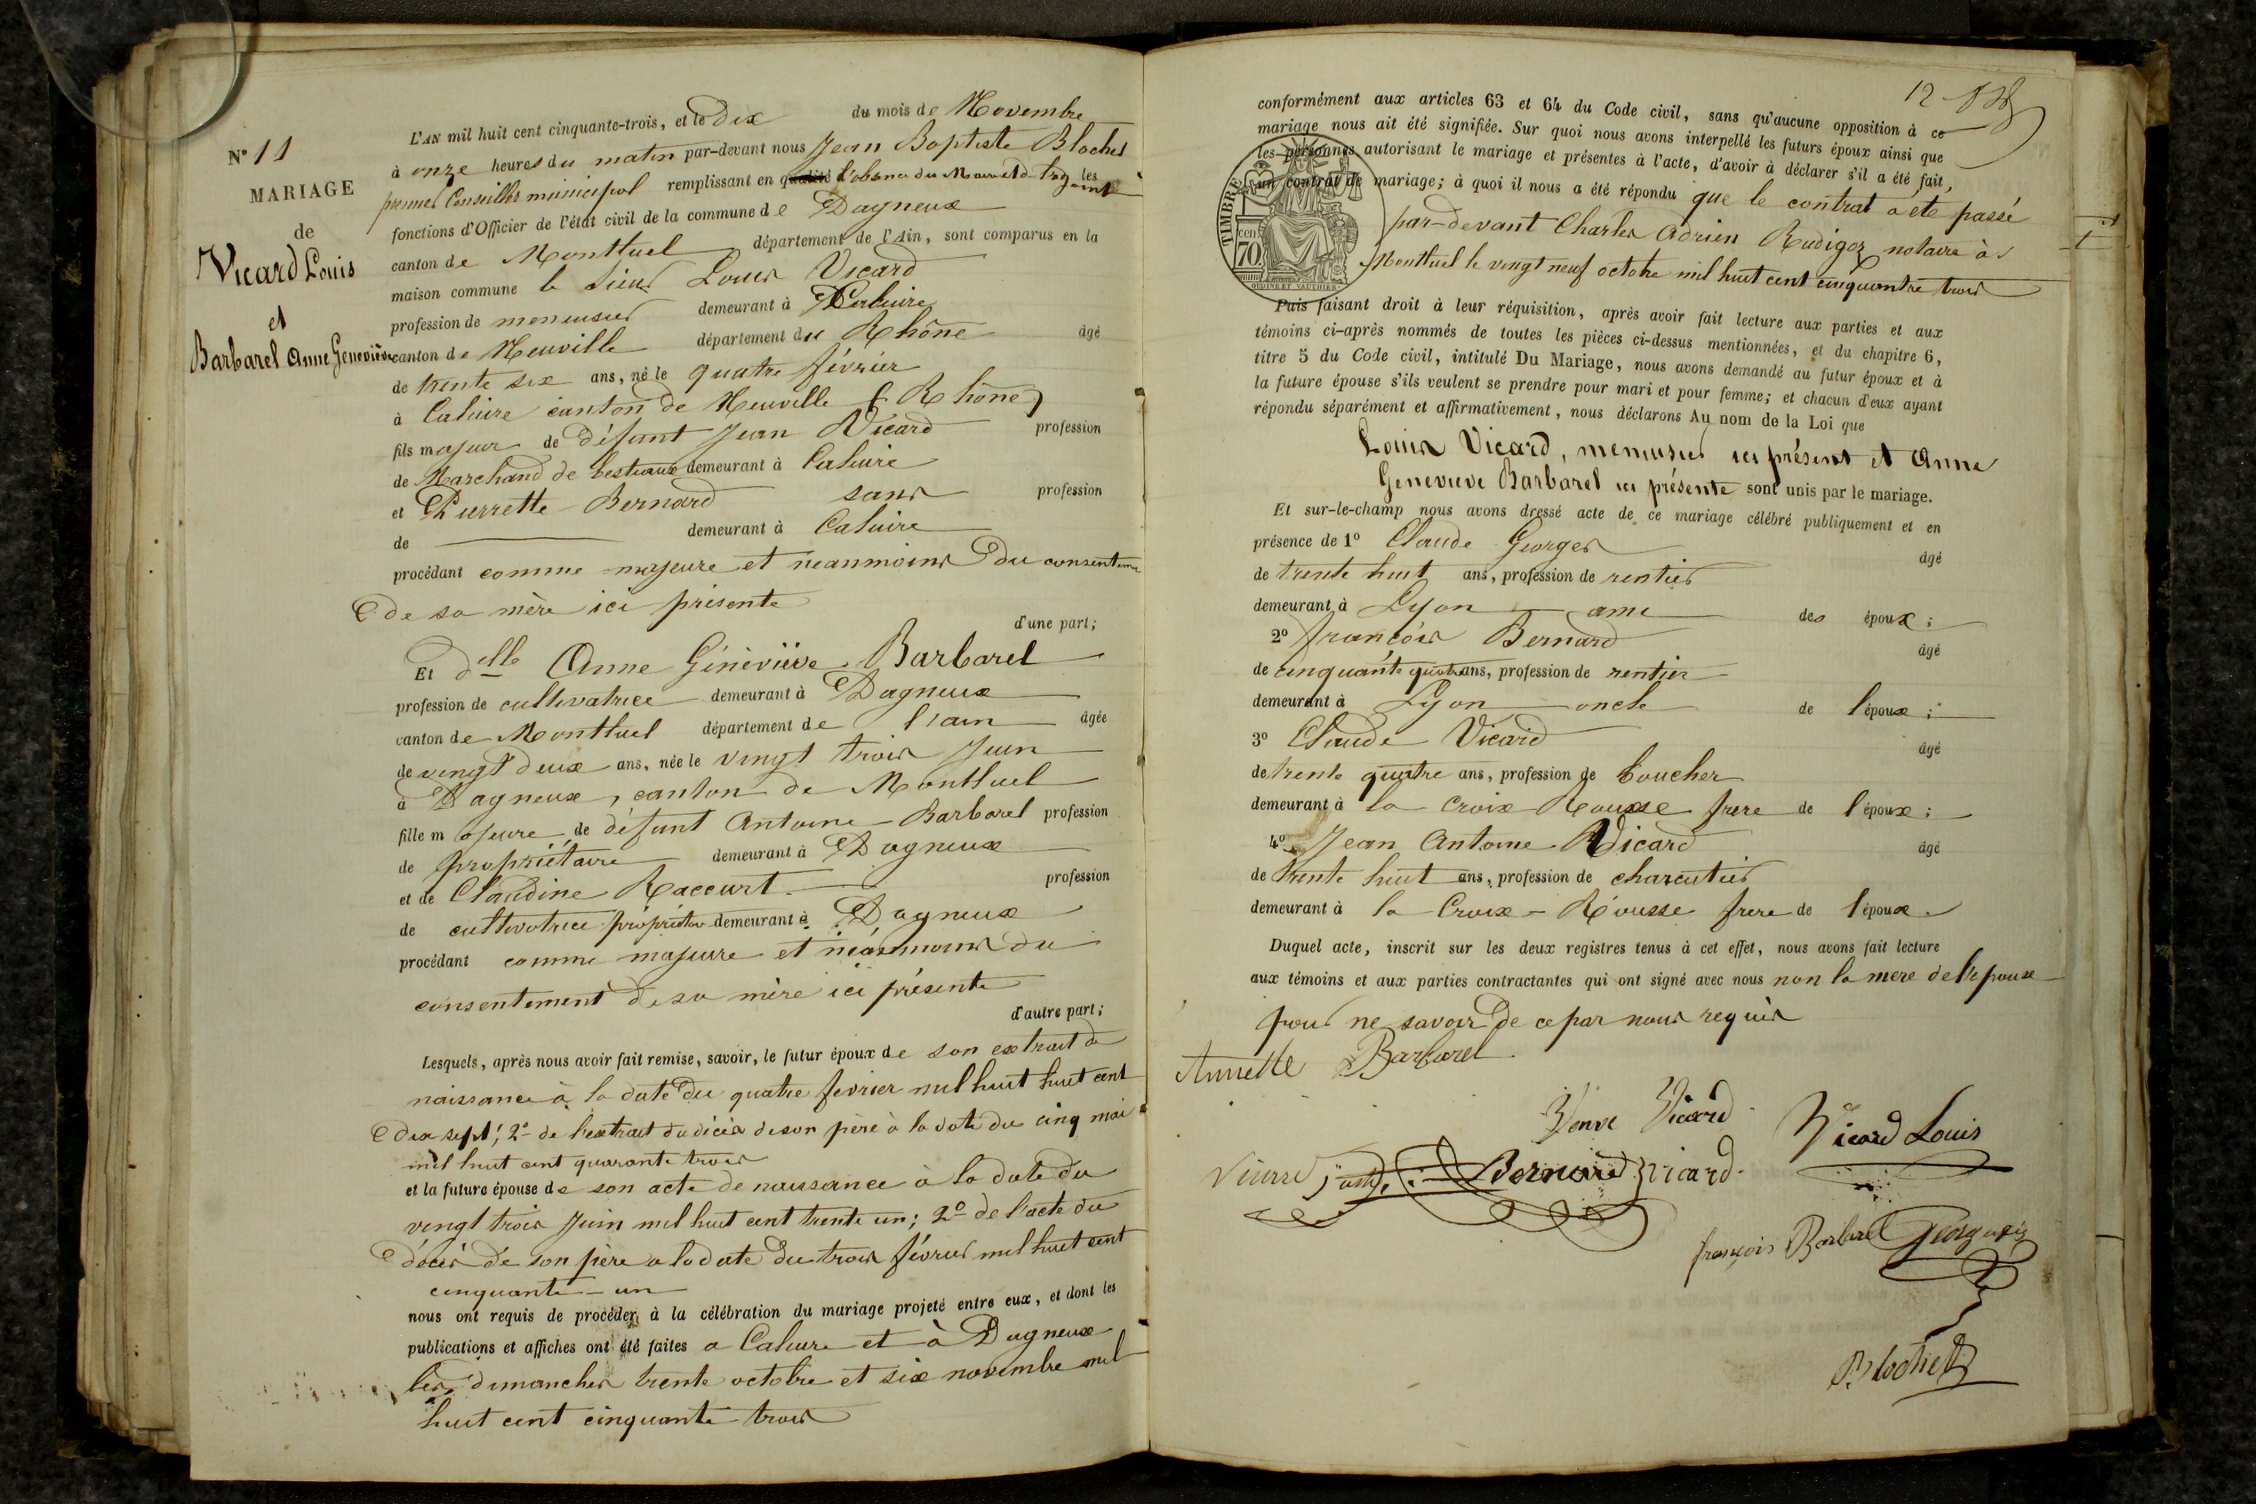 N° 11
MARIAGE
de
Vicard Louis
et
Barbarel Anne Geneviève
L'AN mil huit cent cinquante-trois, et le dix du mois de Novembre
à onze heures du matin par-devant nous Jean Baptiste Blochet
premier Conseiller municipal remplissant en qualité l'absence du Maire et d les
fonctions d'Officier de l'état civil de la commune de Dagneux
canton de Montluel département de l'Ain, sont comparus en la
maison commune le sieur Louis Vicard
profession de menuisier demeurant à Caluire
canton de Neuville département du Rhône âgé
de trente six ans, né le quatre février
à Caluire canton de Neuville (Rhône)
fils majeur de défunt Jean Vicard profession
de Marchand de bestiaux demeurant à Caluire
et Pierrette Bernard sans profession
de demeurant à Caluire
procédant comme majeure et néanmoins du consenteme
de sa mère ici présente
d'une part;
Et delle Anne Généviève Barbarel
profession de cultivatrice demeurant à Dagneux
canton de Montluel département de l'ain âgée
de vingt deux ans, née le vingt trois Juin
à Dagneux, canton de Montluel
fille majeure de défunt Antoine Barbarel profession
de propriétaire demeurant à Dagneux
et de Claudine Raccurt profession
de cultivatrice propriétaire demeurant à Dagneux
procédant comme majeure et néanmoins du
consentement de sa mère ici présente
d'autre part;
Lesquels, après nous avoir fait remise, savoir, le futur époux de son extrait de
naissance à la date du quatre février mil huit huit cent
dix sept; 2° de l'extrait du décès de son père à la date du cinq mai
mil huit cent quarante trois
et la future épouse de son acte de naissance à la date du
vingt trois Juin mil huit cent trente un; 2° de l'acte du
décès de son père a la date du trois février mil huit cent
cinquante-un
nous ont requis de procéder à la célébration du mariage projeté entre eux, et dont les
publications et affiches ont été faites a Caluire et à Dagneux
les dimanches trente octobre et six novembre mil
huit cent cinquante trois
12
conformément aux articles 63 et 64 du Code civil, sans qu'aucune opposition à ce
mariage nous ait été signifiée. Sur quoi nous avons interpellé les futurs époux ainsi que
les personnes autorisant le mariage et présentes à l'acte, d'avoir à déclarer s'il a été fait,
un contrat de mariage; à quoi il nous a été répondu que le contrat a été passé
par-devant Charles Adrien Rudigoz notaire à
Montluel le vingt neuf octobre mil huit cent cinquantre trois
TIMBRE
70 cen
OUDINE ET VAUTHIER
Puis faisant droit à leur réquisition, après avoir fait lecture aux parties et aux
témoins ci-après nommés de toutes les pièces ci-dessus mentionnées, et du chapitre 6,
titre 5 du Code civil, intitulé Du Mariage, nous avons demandé au futur époux et à
la future épouse s'ils veulent se prendre pour mari et pour femme; et chacun d'eux ayant
répondu séparément et affirmativement, nous déclarons Au nom de la Loi que
Louis Vicard, menuisier ici présent et Anne
Genevieve Barbarel ici présente sont unis par le mariage.
Et sur-le-champ nous avons dressé acte de ce mariage célébré publiquement et en
présence de 1° Claude Georges âgé
de trente huit ans, profession de rentier
demeurant à Lyon ami des époux;
2° François Bernard âgé
de cinquante quatre ans, profession de rentier
demeurant à Lyon oncle de l'époux;
3° Claude Vicard âgé
de trente quatre ans, profession de boucher
demeurant à la Croix Rousse frere de l'époux;
4° Jean Antoine Vicard âgé
de trente huit ans, profession de charcutier
demeurant à la Croix-Rousse frere de l'époux
Duquel acte, inscrit sur les deux registres tenus à cet effet, nous avons fait lecture
aux témoins et aux parties contractantes qui ont signé avec nous non la mere de l'epouse
pour ne savoir de ce par nous requis
Annette Barbarel
Venve Vicard
Vicard Louis
Bernard
Vicard
françois Barbarel
Georges
Blochet